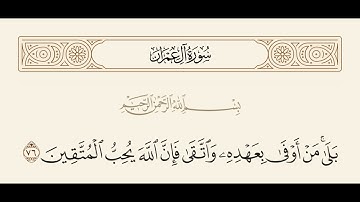 سُورَةُ آلِ عِمْرَانَ
بِسْمِ ٱللَّهِ ٱلرَّحْمَٰنِ ٱلرَّحِيمِ
بَلَىٰۚ مَنْ أَوْفَىٰ بِعَهْدِهِۦ وَٱتَّقَىٰ فَإِنَّ ٱللَّهَ يُحِبُّ ٱلْمُتَّقِينَ ٧٦